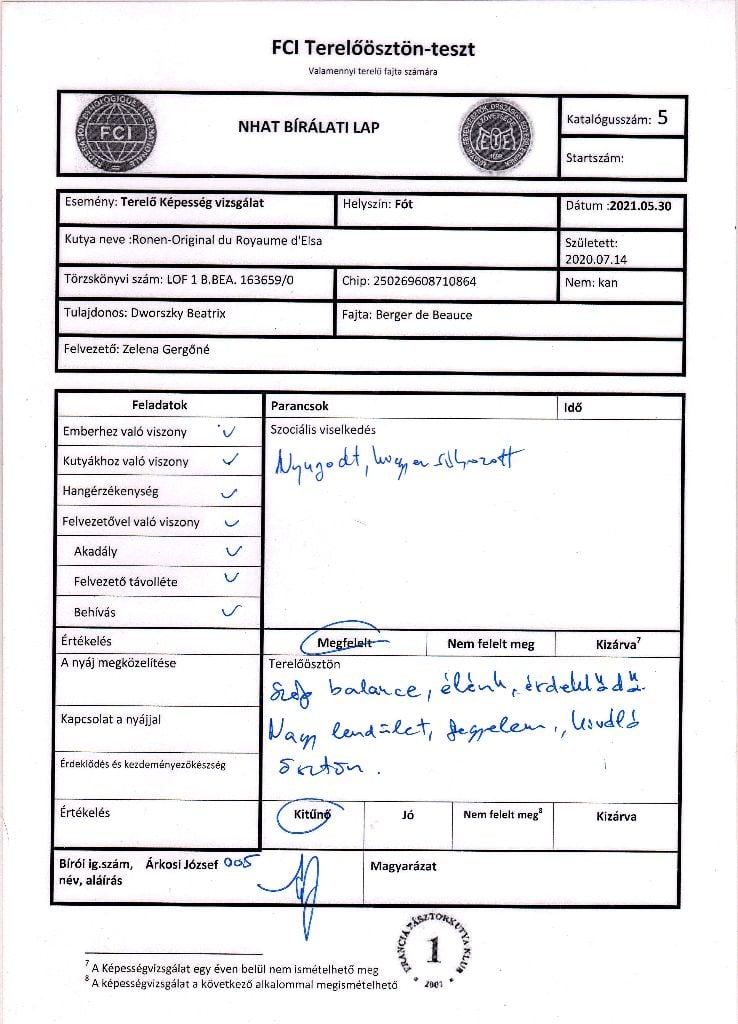 FCI Terelőösztön-teszt
Valamennyi terelő fajta számára
FCI
NHAT BÍRÁLATI LAP
Katalógusszám: 5
Startszám:
Esemény: Terelő Képesség vizsgálat
Helyszín: Fót
Dátum :2021.05.30
Kutya neve :Ronen-Original du Royaume d'Elsa
Született:
2020.07.14
Törzskönyvi szám: LOF 1 B.BEA. 163659/0
Chip: 250269608710864
Nem: kan
Tulajdonos: Dworszky Beatrix
Fajta: Berger de Beauce
Felvezető: Zelena Gergőné
Feladatok
Parancsok
Idő
Emberhez való viszony
Kutyákhoz való viszony
Hangérzékenység
Felvezetővel való viszony
Akadály
Felvezető távolléte
Behívás
Szociális viselkedés
Nyugodt,
Értékelés
Megfelelt
Nem felelt meg
Kizárva7
A nyáj megközelítése
Kapcsolat a nyájjal
Érdeklődés és kezdeményezőkészség
Terelőösztön
Szép balance, élénk, érdeklődő.
Nagy lendület, fegyelem, kiváló
ösztön.
Értékelés
Kitűnő
Jó
Nem felelt meg8
Kizárva
Bírói ig.szám, Árkosi József 005
név, aláírás
Magyarázat
FRANCIA PÁSZTORKUTYA KLUB
1
2001
7 A Képességvizsgálat egy éven belül nem ismételhető meg
8 A képességvizsgálat a következő alkalommal megismételhető